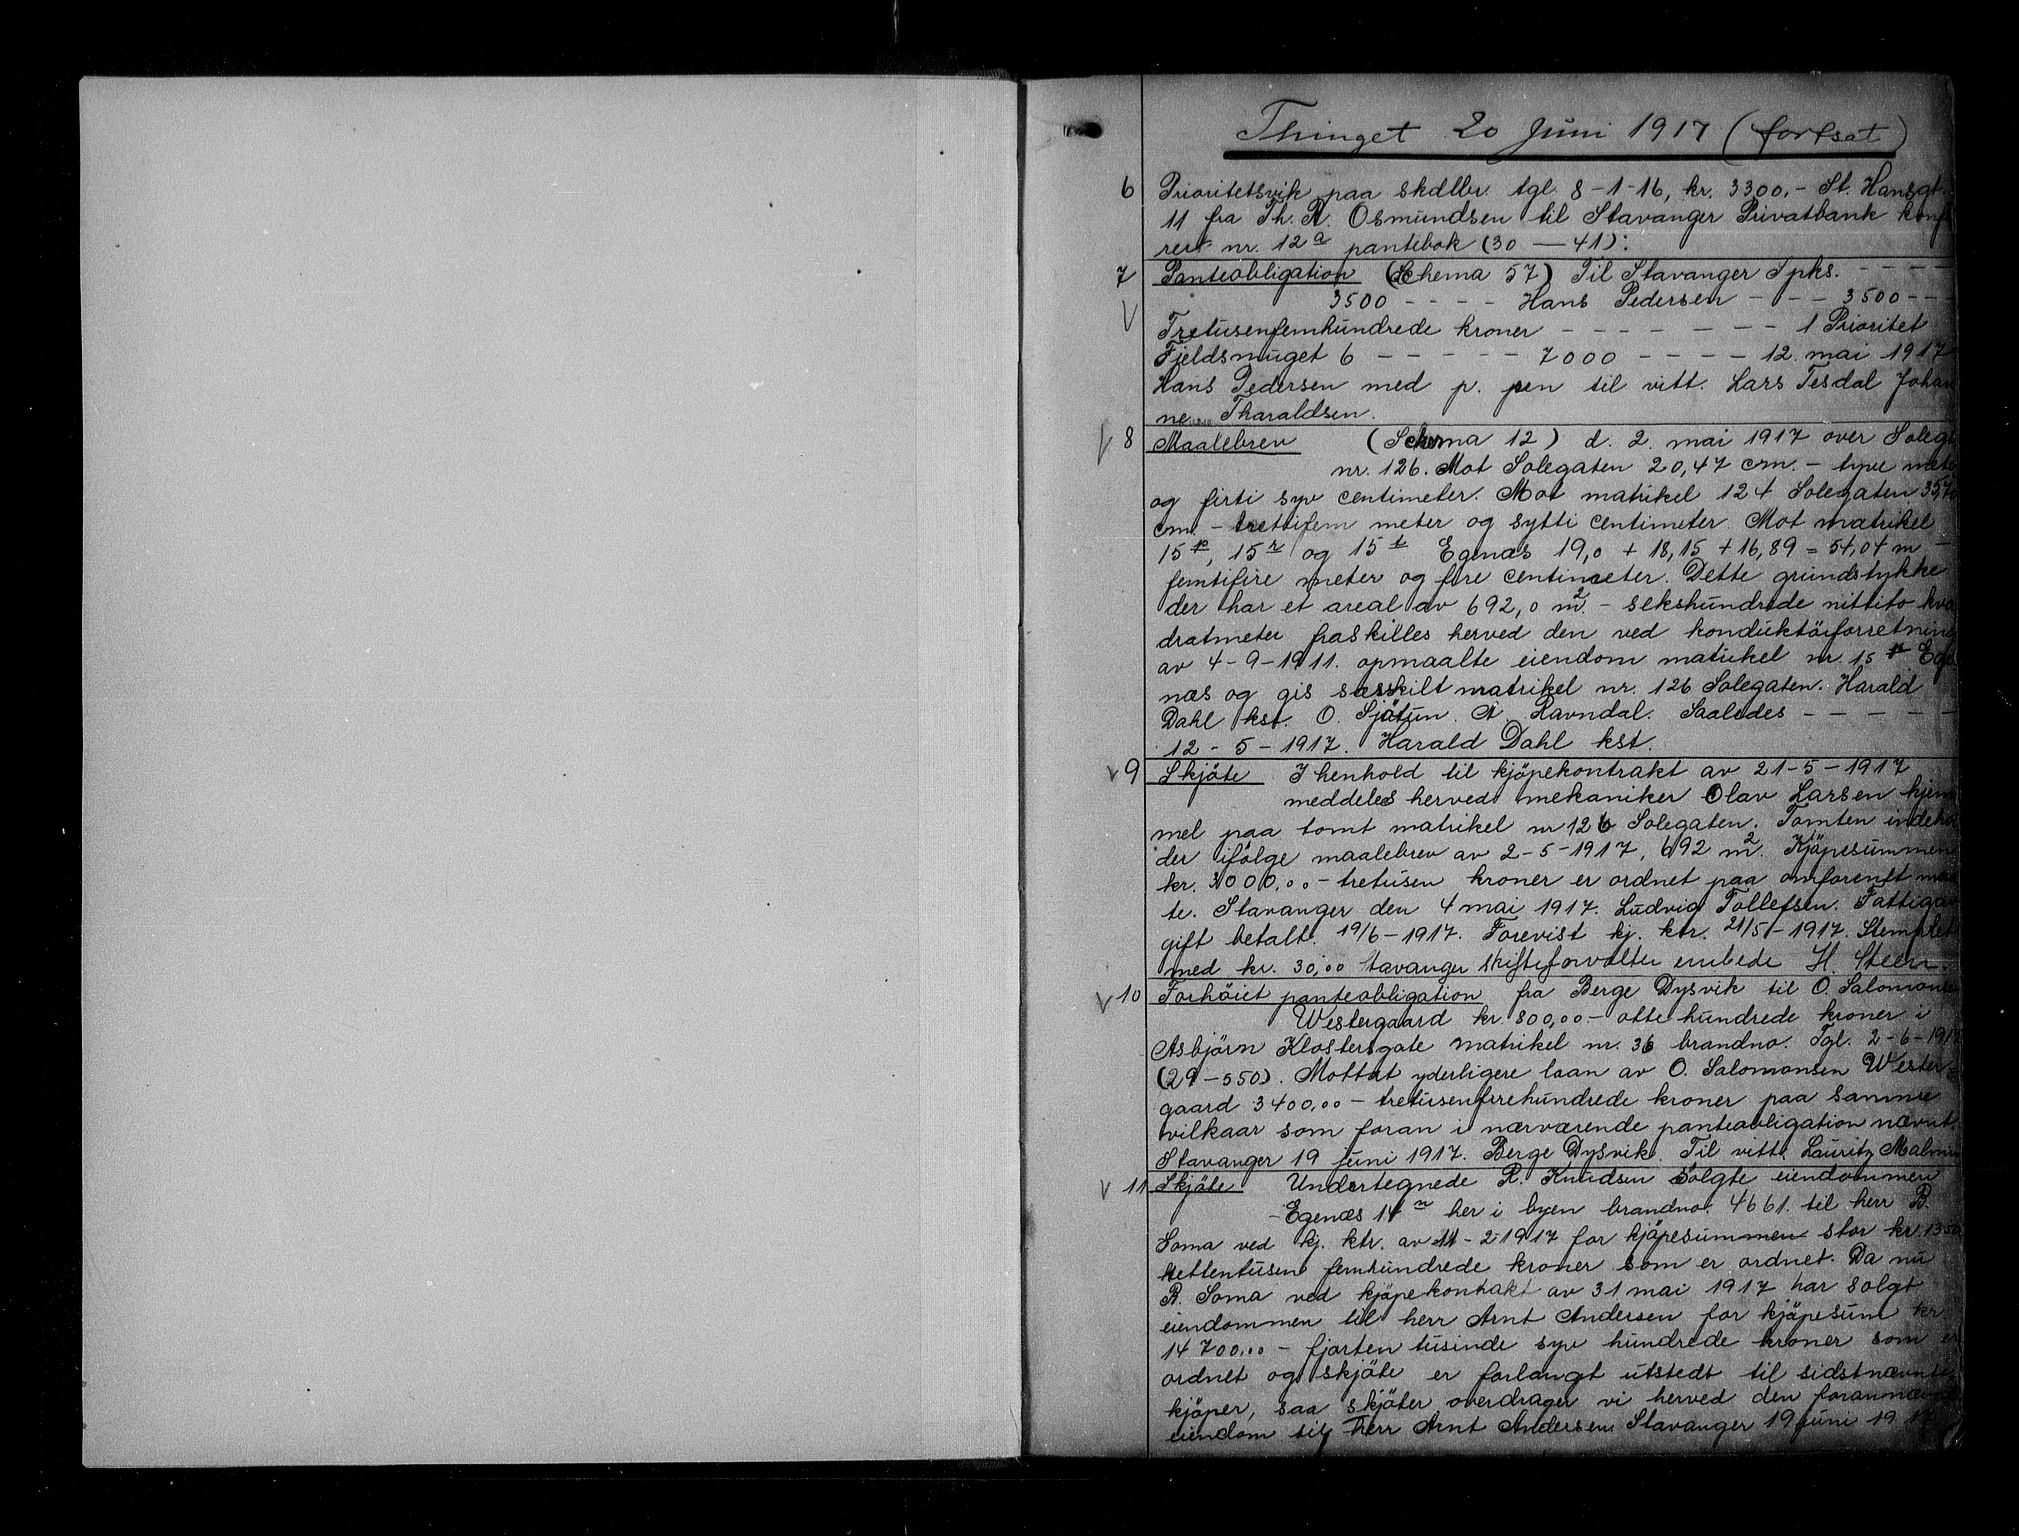 Thinget 20 Juni 1917 (fortsat)
6 Prioritetsvik paa skdlbr. tgl. 8-1-16, kr. 3300.- St. Hansgt.
11 fra Th. R. Osmundsen til Stavanger Privatbank konfe
rert nr. 12a pantebok (30 — 41):
7 Panteobligation (Schema 57) Til Stavanger Spks. - - - -
3500 - - - - Hans Pedersen - - - 3500 - - -
Tretusenfemhundrede kroner - - - - - - - 1 Prioritet
Fjeldsmuget 6 - - - - - 7000 - - - - 12. mai 1917
Hans Pedersen med p. pen til vitt. Lars Tesdal Johan
ne Tharaldsen.
8 Maalebrev (Schema 12) d. 2. mai 1917 over Solegt
nr. 126. Mot Solegaten 20,47 cm. - tyve mete
og firti syv centimeter. Mot matrikel 124 Solegaten 35,70
cm. - trettifem meter og sytti centimeter Mot matrikel
15p, 15r og 15t Egenæs 19,0 + 18,15 + 16,89 = 54,04 m -
femtifire meter og fire centimeter. Dette grundstykke
der har et areal av 692,0 m2 - sekshundrede nittito kva
dratmeter fraskilles herved den ved konduktörforretning
av 4-9-1911. opmaalte eiendom matrikel nr. 15 Ege
næs og gis særskilt matrikel nr. 126 Solegaten. Harald
Dahl kst. O. Sjötun. A. Ravndal. Saaledes - - - - -
12 - 5 - 1917. Harald Dahl kst.
9 Skjöte I henhold til kjöpekontrakt av 21-5-1917
meddeles herved mekaniker Olav Larsen hjem
mel paa tomt matrikel nr 126 Solegaten. Tomten indehol
der ifölge maalebrev av 2-5-1917, 692 m2. Kjöpesummen
kr. 3000,00 - tretusen kroner er ordnet paa omforenet maa
te. Stavanger den 4 mai 1917. Ludvig Tollefsen. Fattigav
gift betalt. 19/6-1917. Forevist kj. ktr. 21/5-1917. Stemplet
med kr. 30,00 tavanger skifteforvalter embede H. Steen.
10 Forhöiet panteobligation fra Berge Dysvik til O. Salomonsen
Westergaard kr. 800,00 - otte hundrede kroner i
Asbjörn Klostersgate matrikel nr. 36 brandno. Tgl. 2-6-191
(29-550). Mottat yderligere laan av O. Salomonsen Wester-
gaard 3400,00 - tretusenfirehundrede kroner paa samme
vilkaar som foran i nærværende panteobligation nævnt.
Stavanger 19 juni 1917. Berge Dysvik. Til vitt. Lauritz Malmin
11 Skjöte Undertegnede R. Knudsen solgte eiendommen
- Egenæs 14n her i byen brandno. 4661. til herr B.
Soma ved kj. ktr. av 11-2-1917 for kjöpesummen stor kr. 1350
tettentusen femhundrede kroner som er ordnet. Da nu
B. Soma ved kjöpekontrakt av 31 mai 1917 har solgt
eiendommen til herr Arnt Andersen for kjöpesum kr.
14700,00 - fjorten tusinde syv hundrede kroner som er
ordnet og skjöte er forlangt utstedt til sidstnævnte
kjöper, saa skjöter overdrager vi herved den forannævnte
eiendom til herr Arnt Andersen. Stavanger 19 juni 1917